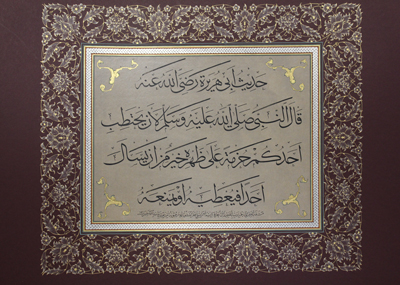 حديث أبي هريرة رضي الله عنه
قال النبي صلى الله عليه وسلم لأن يحتطب
أحدكم حزمة على ظهره خير من أن يسأل
أحدا فيعطيه أو يمنعه